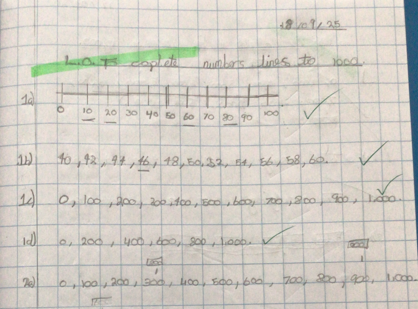 18/09/25
L.O. To coplete numbers lines to 1000.
1a) 0 10 20 30 40 50 60 70 80 90 100
1b) 40, 42, 44, 46, 48, 50, 52, 54, 56, 58, 60.
1c) 0, 100, 200, 300, 400, 500, 600, 700, 800, 900, 1,000.
1d) 0, 200, 400, 600, 800, 1,000.
2a) 0, 100, 200, 300, 400, 500, 600, 700, 800, 900, 1,000